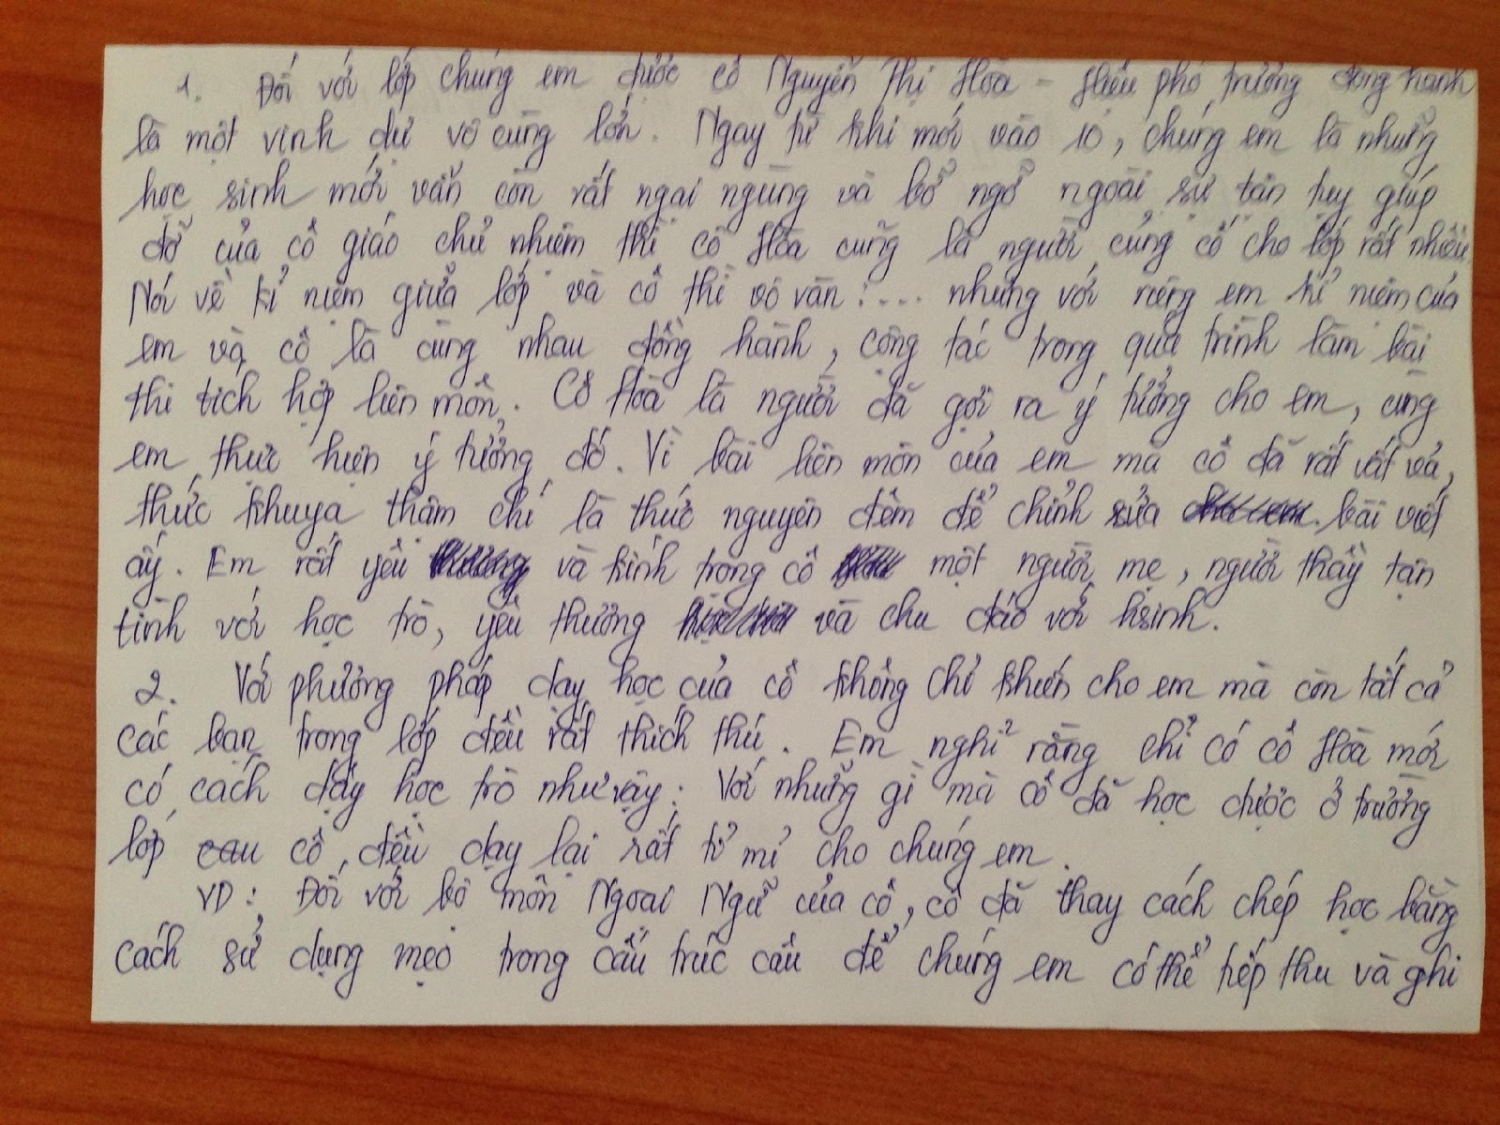 1. Đối với lớp chúng em được cô Nguyễn Thị Hòa - Hiệu phó trường đồng hành
là một vinh dự vô cùng lớn. Ngay từ khi mới vào 10, chúng em là những
học sinh mới vẫn còn rất ngại ngùng và bỡ ngỡ ngoài sự tận tụy giúp
đỡ của cô giáo chủ nhiệm thì cô Hòa cũng là người củng cố cho lớp rất nhiều.
Nói về kỉ niệm giữa lớp và cô thì vô vàn :.... nhưng với riêng em kỉ niệm của
em và cô là cùng nhau đồng hành, cộng tác trong quá trình làm bài
thi tích hợp liên môn. Cô Hòa là người đã gợi ra ý tưởng cho em, cùng
em thực hiện ý tưởng đó. Vì bài liên môn của em mà cô đã rất vất vả,
thức khuya thậm chí là thức nguyên đêm để chỉnh sửa bài viết
ấy. Em rất yêu và kính trọng cô một người mẹ, người thầy tận
tình với học trò, yêu thương và chu đáo với hsinh.
2. Với phương pháp dạy học của cô không chỉ khiến cho em mà còn tất cả
các bạn trong lớp đều rất thích thú. Em nghỉ rằng chỉ có cô Hòa mới
có cách dạy học trò như vậy: Với những gì mà cô đã học được ở trường
lớp cô đều dạy lại rất tỉ mỉ cho chúng em.
VD: Đối với bộ môn Ngoại Ngữ của cô, cô đã thay cách chép học bằng
cách sử dụng mẹo trong cấu trúc câu để chúng em có thể tiếp thu và ghi